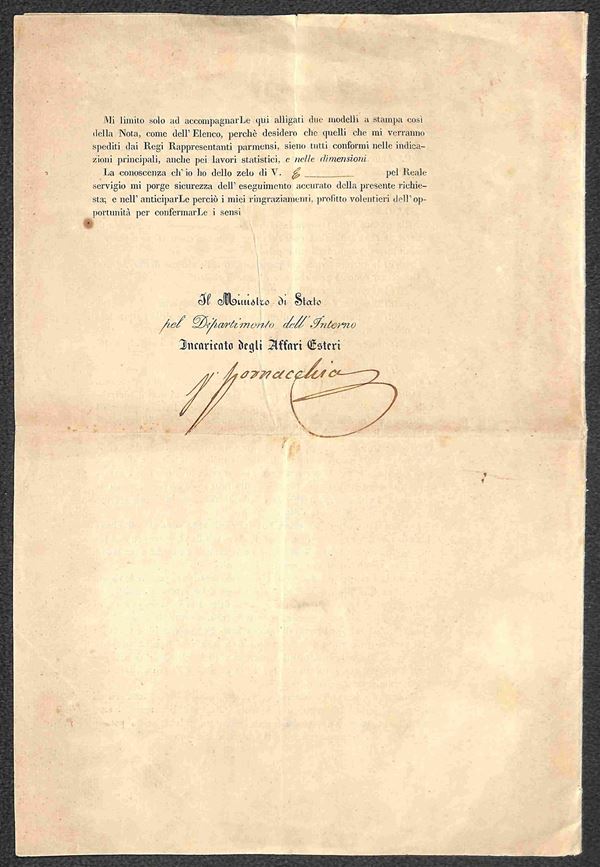 Mi limito solo ad accompagnarLe qui alligati due modelli a stampa così
della Nota, come dell' Elenco, perchè desidero che quelli che mi verranno
spediti dai Regi Rappresentanti parmensi, sieno tutti conformi nelle indica-
zioni principali, anche pei lavori statistici, e nelle dimensioni.
La conoscenza ch'io ho dello zelo di V. E pel Reale
servigio mi porge sicurezza dell' eseguimento accurato della presente richie-
sta; e nell' anticiparLe perciò i miei ringraziamenti, profitto volentieri dell' op-
portunità per confermarLe i sensi
Il Ministro di Stato
pel Dipartimento dell' Interno
Incaricato degli Affari Esteri